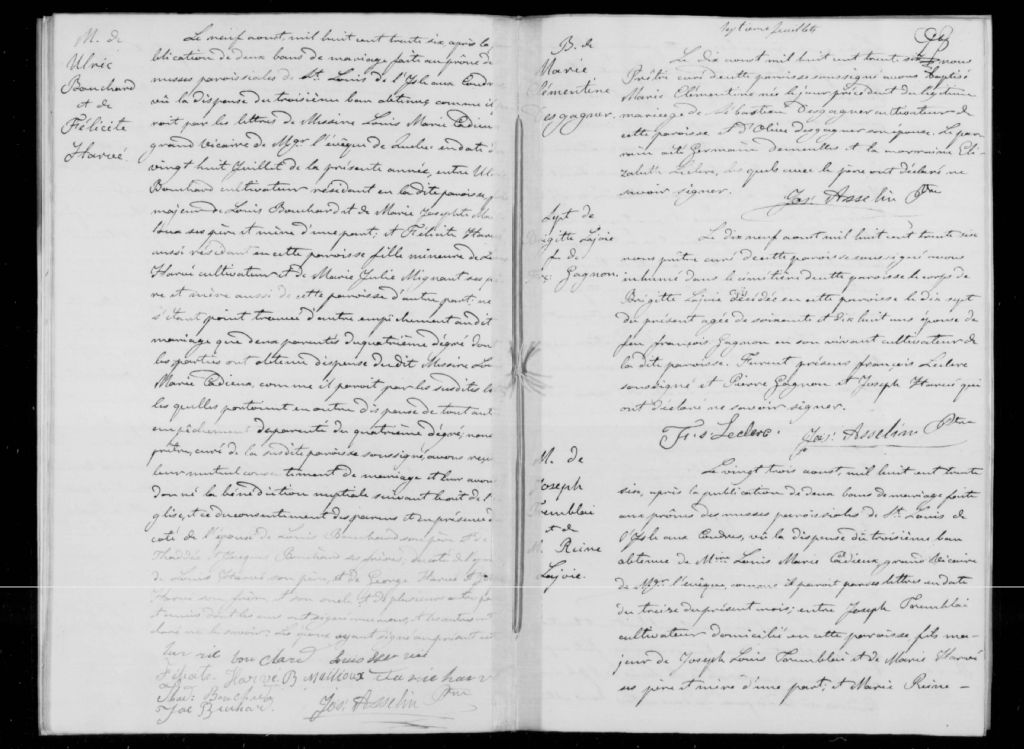 M. de
Ulric
Bouchard
et de
Félicité
Harvé
Le neuf aoust, mil huit cent trente six, après la
blication de deux bans de mariage faite au prône de
messes paroissiales de St. Louis de l'Isle aux Coudre
vû la dispense du troisième ban obtenue, comme il
roit par les lettres de Messire Louis Marie Cadieu
grand vicaire de Mgr. l'évêque de Québec en date d
vingt huit Juillet de la présente année, entre Ul
Bouchard cultivateur résidant en la dite paroisse
majeur de Louis Bouchard et de Marie Josephte
ses père et mère d'une part; et Félicité Har
aussi résidant en cette paroisse fille mineure de
Harvé cultivateur et de Marie Julie Mignant ses p
re et mère aussi de cette paroisse d'autre part; ne
s'étant point trouvé d'autre empêchement au dit
mariage que deux parentés du quatrième dégré don
les parties ont obtenu dispense du dit Messire Lo
Marie Cadieux, comme il paroit par les susdites le
les quelles portoient en outre dispense de tout aut
empêchement de parenté du quatrième dégré; nous
prêtre, curé de la susdite paroisse soussigné, avons reçu
leur mutuel consentement de mariage et leur avons
donné la bénédiction nuptiale suivant de l'
glise, et ce du consentement des parens et en présence d
coté de l'époux de Louis Bouchard son père et de
Thaddée et Jacques Bouchard ses frères, du coté de l'épou
de Louis Harvé son père, et de George Harvé et
Harvé frère et son oncle et de plusieurs autres pa
et amis dont les uns ont signé avec nous, et les autres ont
claré ne le savoir. Les époux ayant signé
bou chard
Harve B Mailloux
Thad. Bouchard
Jac Buchar.
Jos. Asselin Ptre
septième feuillet
B. de
Marie
Clémentine
Desgagner
Le dix aoust mil huit cent trente six nous
Prêtre curé de cette paroisse soussigné avons baptisé
Marie Clémentine née le jour précédent du légitime
mariage de Sébastien Desgagner cultivateur de
cette paroisse et d'Olive Desgagner son épouse. Le par-
rain a été Germain et la marraine Eli-
zabeth Leclerc, les quels avec le père ont déclaré ne
savoir signer.
Jos. Asselin Ptre
Sept de
Brigitte Lajoie
f. de
Gagnon
Le dix neuf aout mil huit cent trente six
nous prêtre curé de cette paroisse soussigné avons
inhumé dans le cimetière de cette paroisse le corps de
Brigitte Lajoie décédée en cette paroisse le dix sept
du présent agée de soixante et dix huit ans épouse de
feu françois Gagnon en son vivant cultivateur de
la dite paroisse. Furent présens françois Leclerc
soussigné et Pierre Gagnon et Joseph Harvé qui
ont déclaré ne savoir signer.
Frs Leclerc. Jos. Asselin Ptre
M. de
Joseph
Tremblai
et de
M. Reine
Lajoie.
Le vingt trois aoust, mil huit cent trente
six, après la publication de deux bans de mariage faite
aux prônes des messes paroissiales de St. Louis de
l'Isle aux Coudres, vû la dispense du troisième ban
obtenue de Mre. Louis Marie Cadieux, grand Vicaire
de Mgr. l'évêque, comme il paroit par ses lettres en date
du treize du présent mois; entre Joseph Tremblai
cultivateur domicilié en cette paroisse fils ma-
jeur de Joseph Louis Tremblai et de Marie Harvé
ses père et mère d'une part; et Marie Reine-